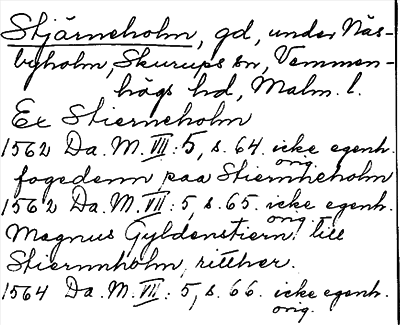 Stjärneholm, gd, under Näs-
byholm, Skurups sn, Vemmen-
högs hd, Malm. l.
Ex Stierneholm
1562 Da. M. VII: 5, s. 64. icke egenh.
orig.
fogedenn paa Stiernneholm
1562 Da. M. VII: 5, s. 65. icke egenh.
orig.
Magnus Gyldenstiern till
Stiernnholm, ritther.
1564 Da. M. VII: 5, s. 66. icke egenh.
orig.